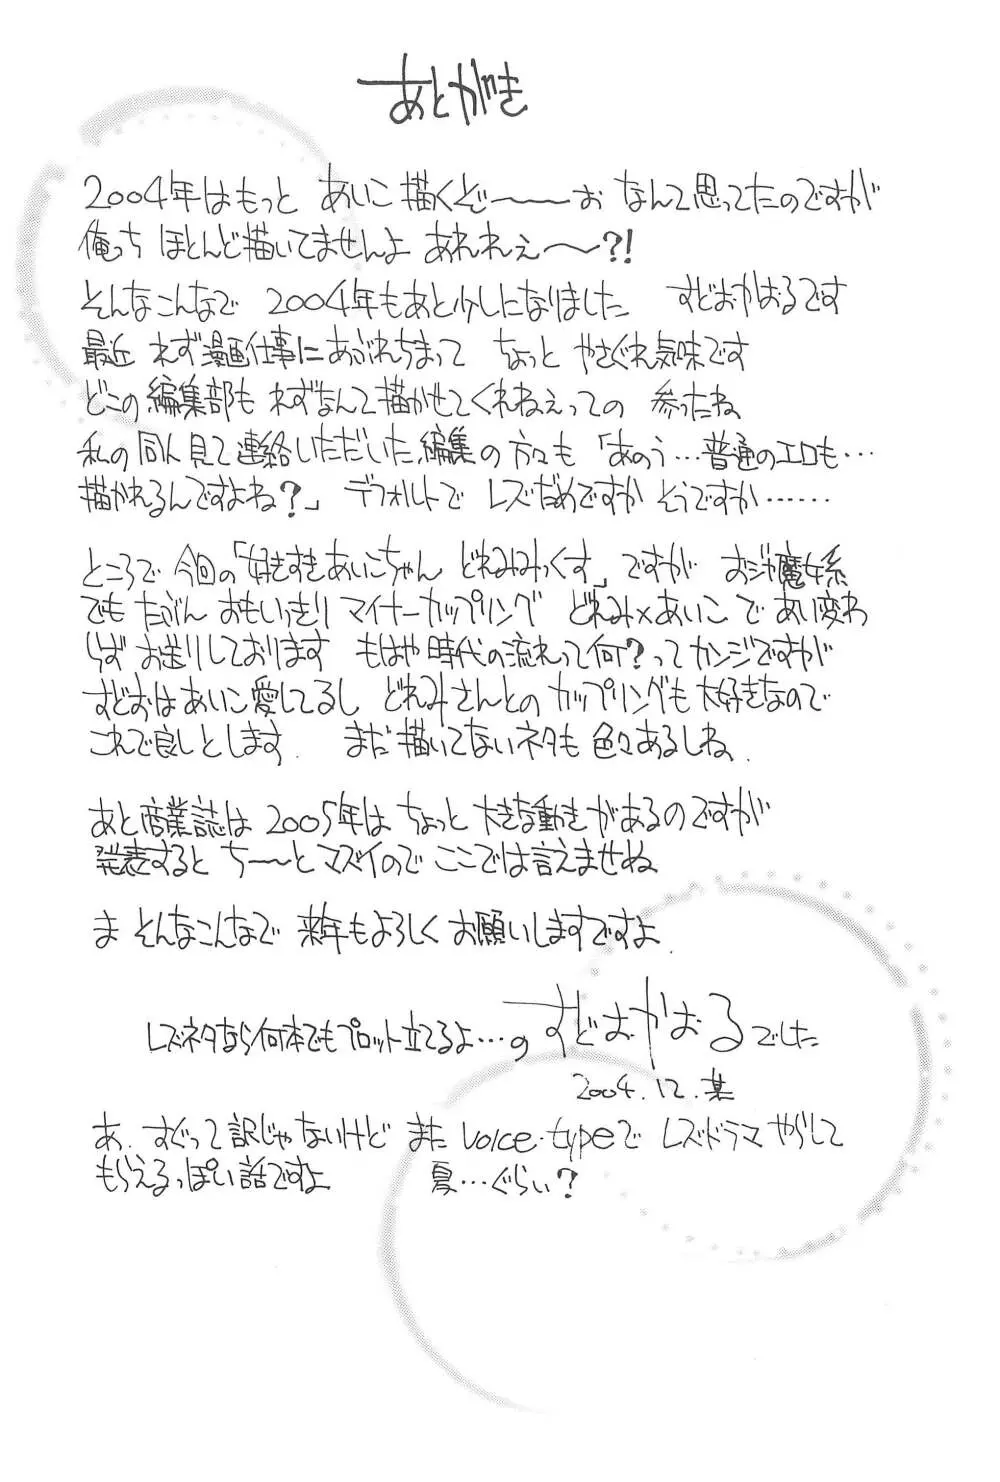 あとがき
2004年はもっと あいこ描くぞ〜〜〜ぉ なんて思ってたのですが
俺っち ほとんど描いてませんよ あれれぇ〜〜?!
そんなこんなで 2004年もあと少しになりました すどおかおるです
最近 れず漫画仕事にあぶれちまって ちょっと やさぐれ気味です
どこの編集部も れずなんて描かせてくれねぇっての 参ったね
私の同人見て連絡いただいた編集の方々も 「あのう…普通のエロも…
描かれるんですよね?」 デフォルトで レズだめですか そうですか……
ところで 今回の「好きすきあいこちゃん どれみみっくす」ですが おジャ魔女系
でも たぶん おもいっきり マイナーカップリング どれみ×あいこ で あい変わ
らず お送りしております もはや時代の流れって何?ってカンジですが
すどおはあいこ愛してるし どれみさんとの カップリングも大好きなので
これで良しとします. まだ描いてないネタも色々あるしね.
あと商業誌は 2005年は ちょっと大きな動きがあるのですが
発表すると ち〜〜とマズイので ここでは言えませぬ
ま そんなこんなで 来年もよろしく お願いしますですよ.
レズネタなら何本でもプロット立てるよ…の すどおかおる でした
2004.12.某
あ. すぐって訳じゃないけど また voice-typeで レズドラマ やらして
もらえるっぽい話ですよ 夏…ぐらい?